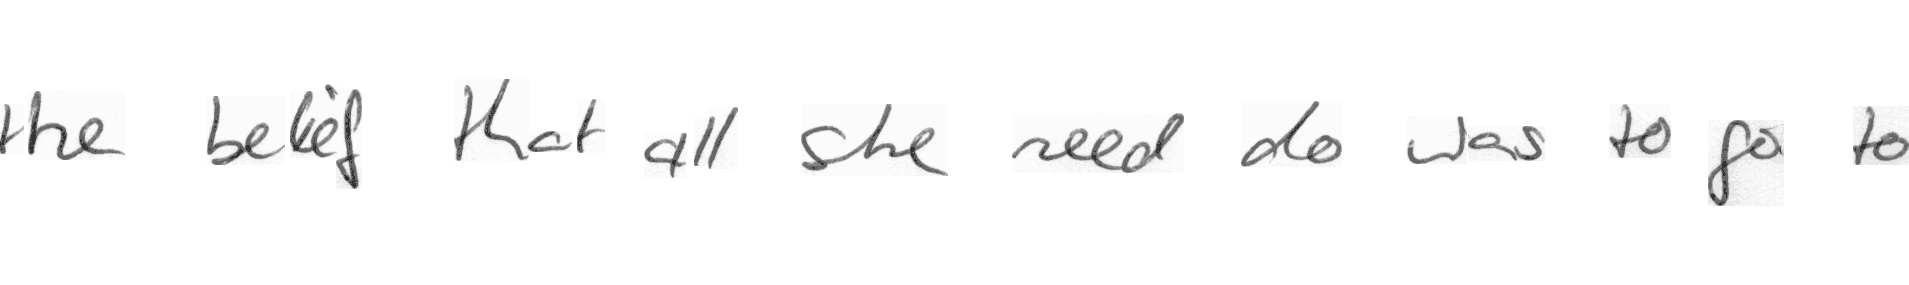 the belief that all she need do was to go to